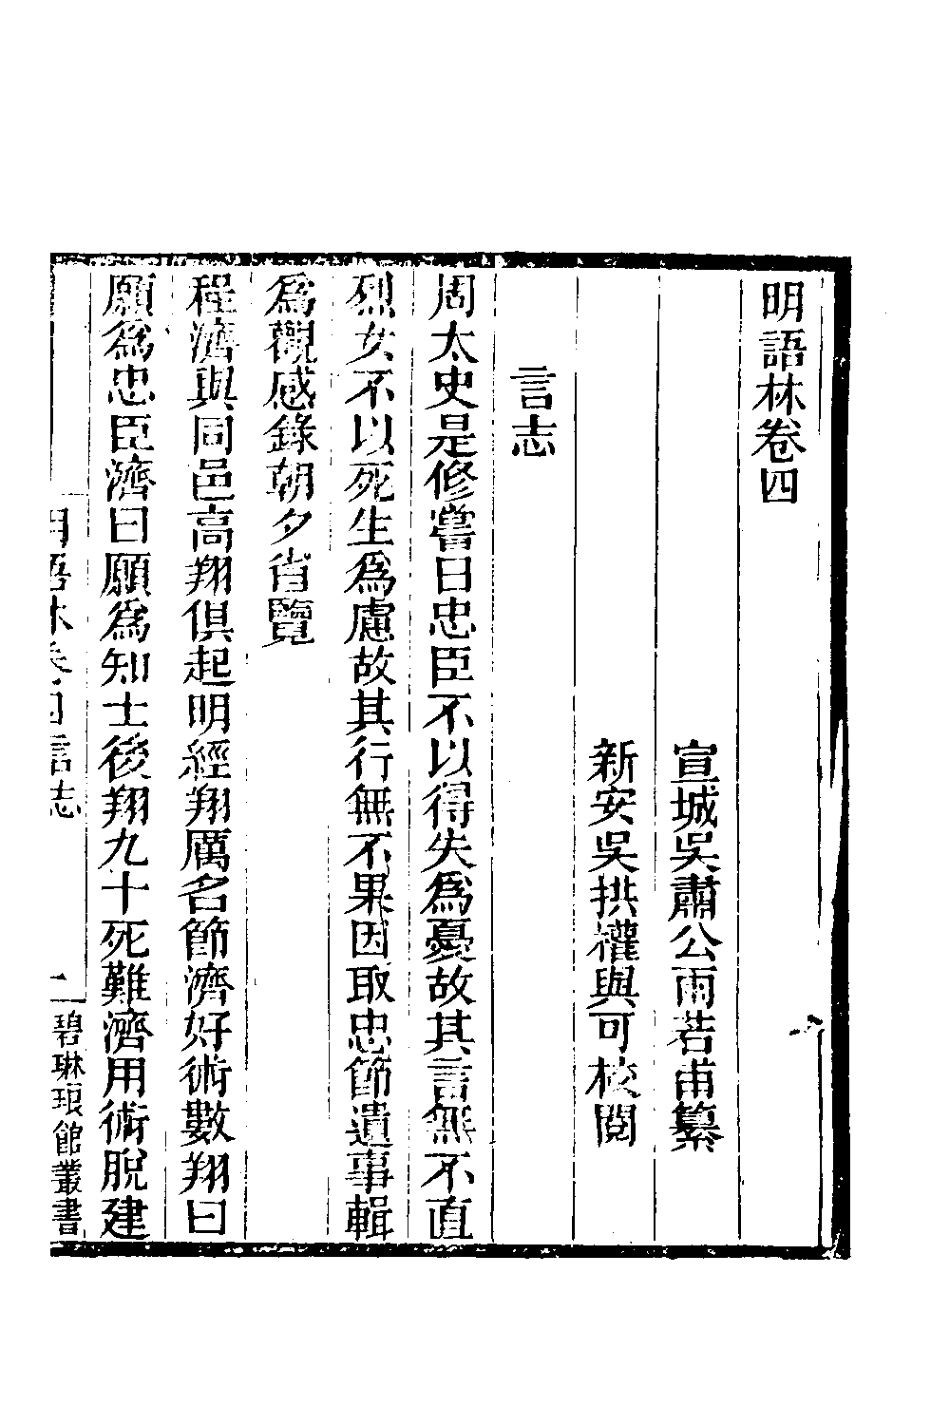 明語林卷四
宣城吳肅公雨若甫纂
新安吳拱權與可校閱
言志
周太史是修嘗曰忠臣不以得失為憂故其言無不直
烈女不以死生為慮故其行無不果因取忠節遺事輯
為觀感錄朝夕省覽
程濟與同邑高翔俱起明經翔厲名節濟好術數翔曰
願為忠臣濟曰願為知士後翔九十死難濟用術脫建
明語林卷四言志
一碧琳琅館叢書